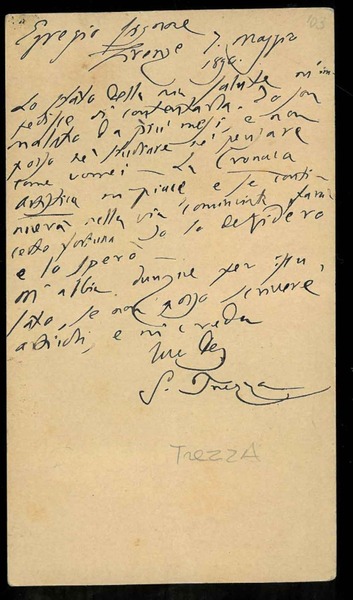 103
Egregio Signore
Firenze 7. Maggio
1890.
Lo stato della mia salute m'im-
pedisce di contentarla. Io son
malato da più mesi e non
posso nè studiare nè pensare
come vorrei — La Cronaca
Artistica mi piace e se conti-
nuerà nella via cominciata farà
certo fortuna. Io lo desidero
e lo spero —
M'abbia dunque per iscu-
sato, se non posso scrivere
articoli, e mi creda
Suo
G. Trezza
TREZZA